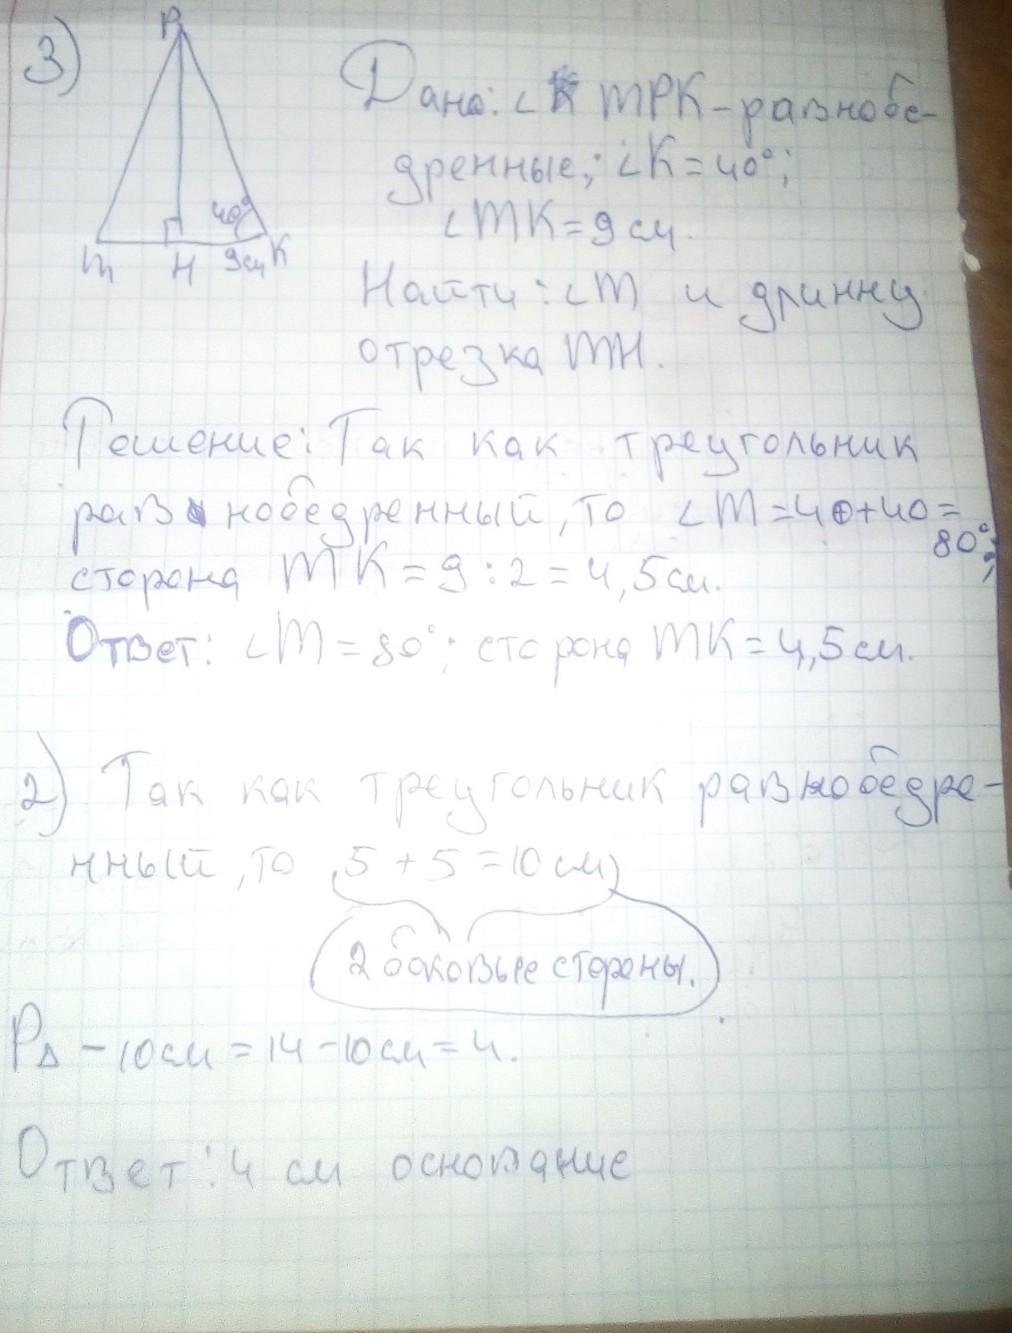 3)
P
40°
M H 9см K
Дано: ∠ МРК - равнобе-
дренные; ∠К = 40°;
∠МК = 9 см.
Найти: ∠М и длинну
отрезка МН.
Решение: Так как треугольник
равнобедренный, то ∠М = 40 + 40 =
80°;
сторона МК = 9 : 2 = 4,5 см.
Ответ: ∠М = 80°; сторона МК = 4,5 см.
2) Так как треугольник равнобедре-
нный, то 5 + 5 = 10 см
2 боковые стороны.
P∆ - 10 см = 14 - 10 см = 4.
Ответ: 4 см основание